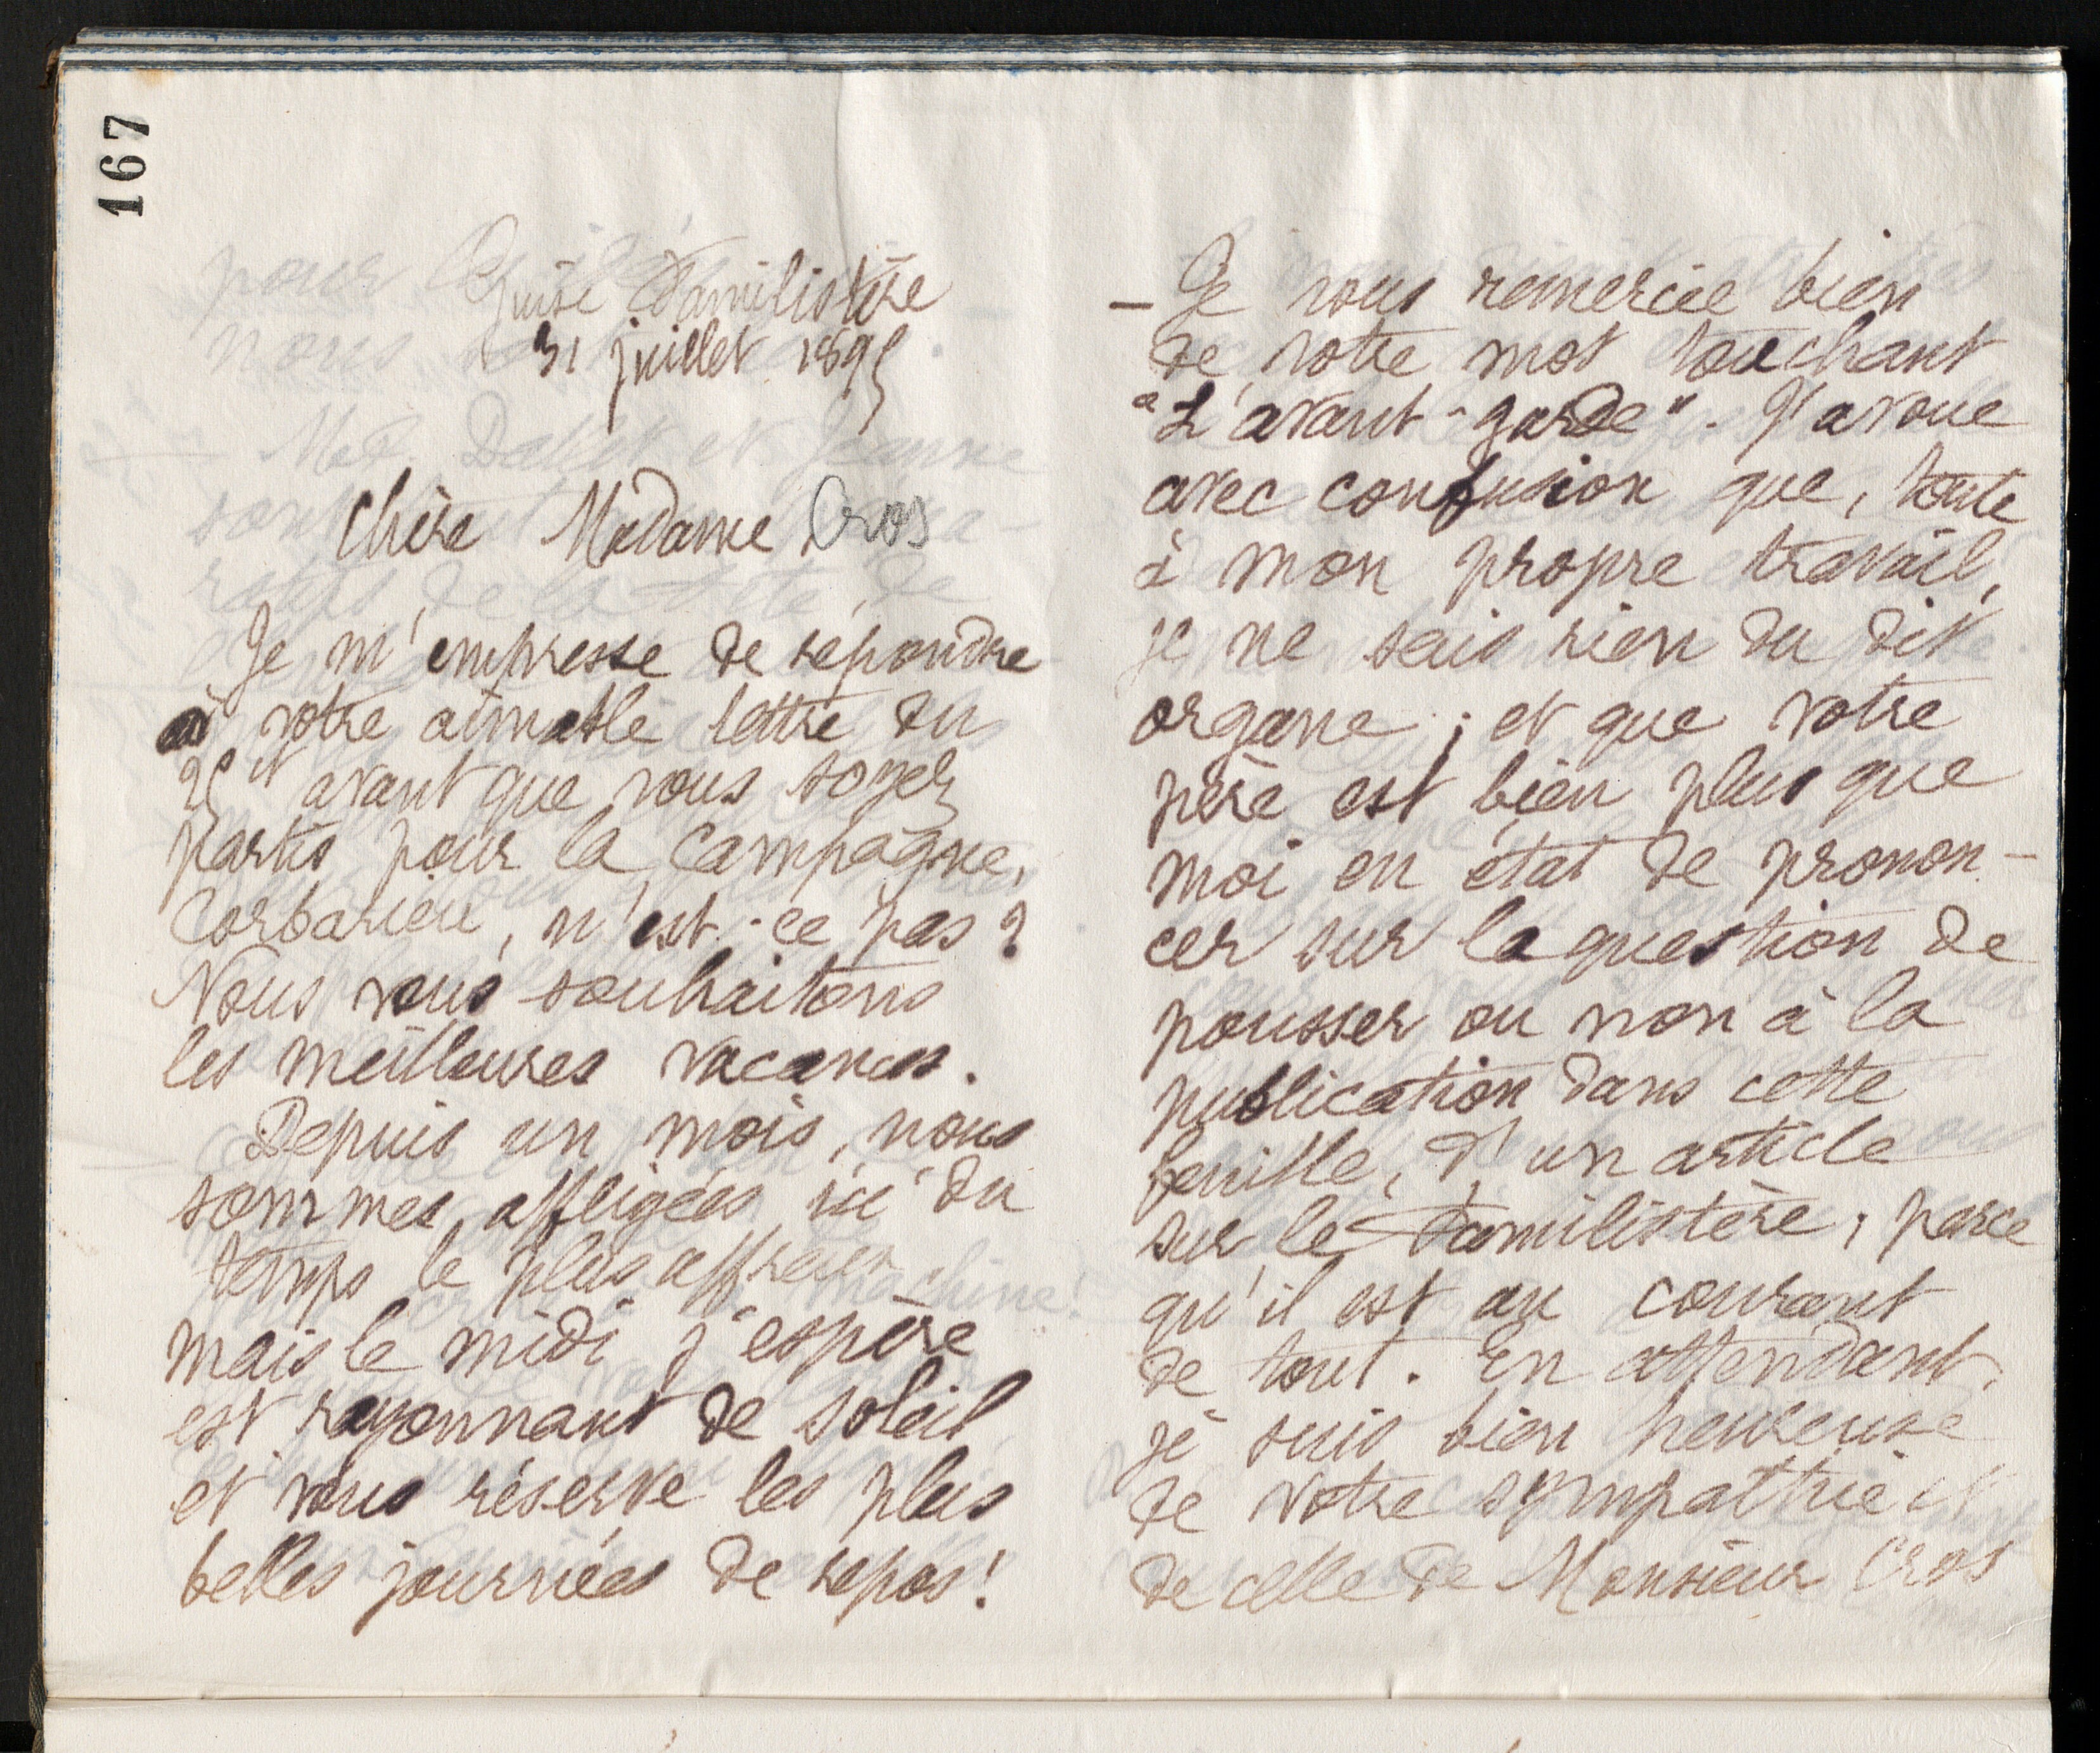 167
Guise Familistère
31 juillet 1895
Chère Madame Cros
Je m'empresse de répondre
à votre aimable lettre du
25 et avant que vous soyez
partis pour la campagne,
Corbarieu, n'est-ce pas ?
Nous vous souhaitons
les meilleures vacances.
Depuis un mois, nous
sommes affligées ici du
temps le plus affreux,
mais le midi j'espère
est rayonnant de soleil
et vous réserve les plus
belles journées de repos !
— Je vous remercie bien
de votre mot touchant
"L'avant-garde". J'avoue
avec confusion que, toute
à mon propre travail,
je ne sais rien du dit
organe ; et que votre
père est bien plus que
moi en état de pronon-
cer sur la question de
pousser ou non à la
publication dans cette
feuille, d'un article
sur le Familistère, parce
qu'il est au courant
de tout. En attendant,
je suis bien heureuse
de votre sympathie et
de celle de Monsieur Cros